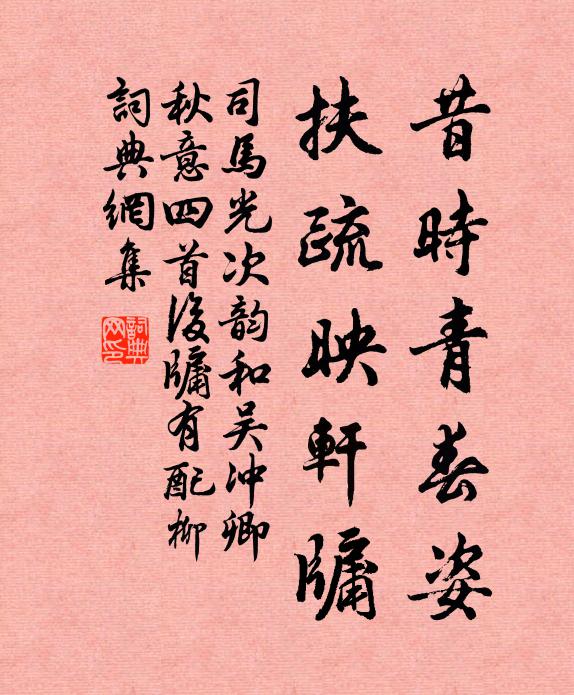 昔時青春姿
扶疏映軒牖
司馬光次韵和吴冲卿
秋意四首後牖有配柳
詞典網集
詞典网印